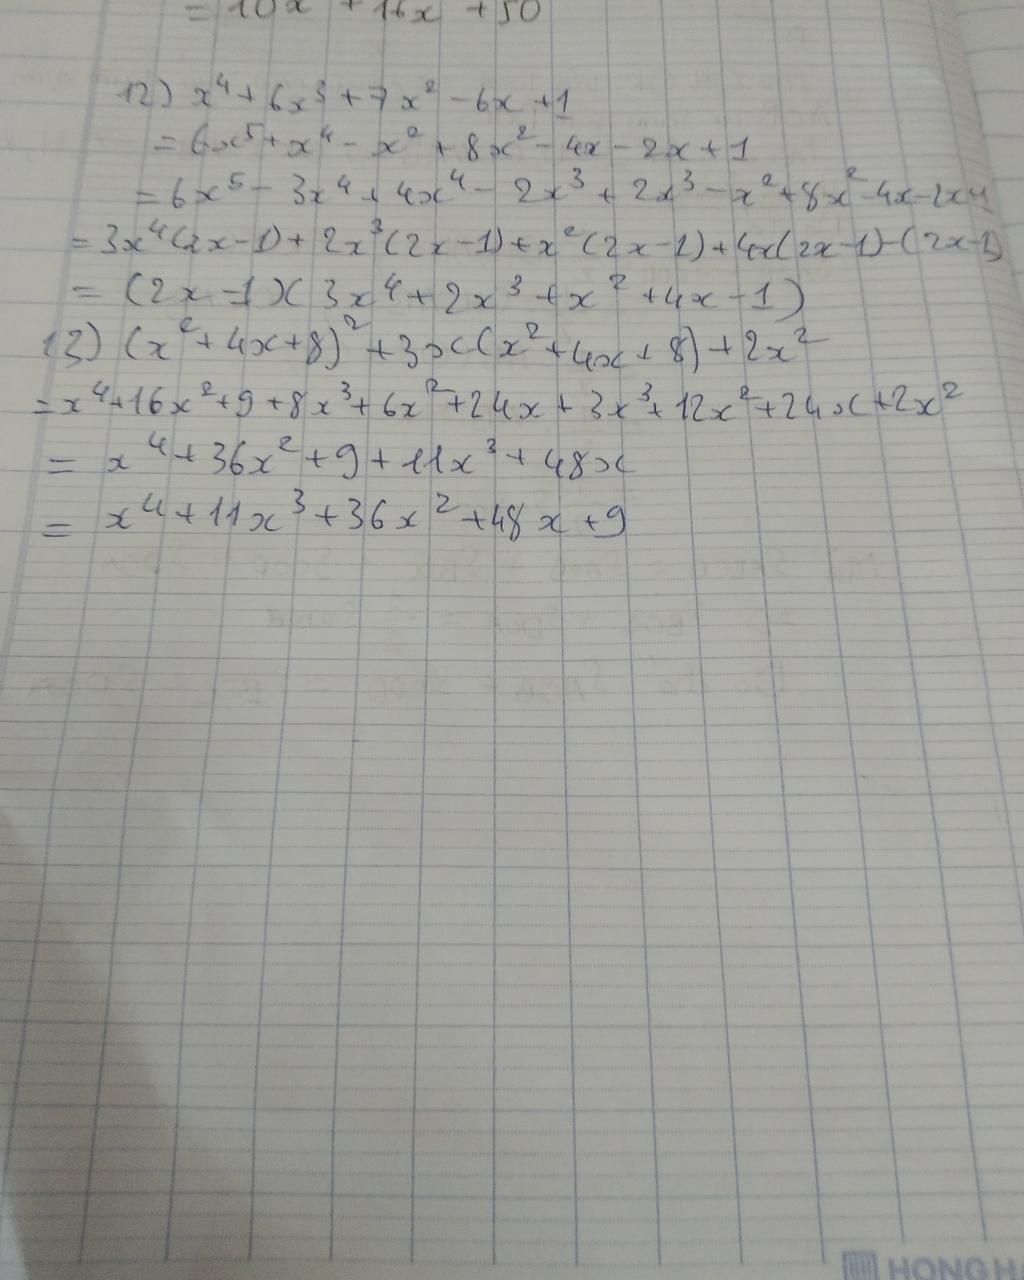 = 10x + 16x + 50
12) x⁴ + 6x³ + 7x² - 6x + 1
= 6x⁵ + x⁴ - x² + 8x² - 4x - 2x + 1
= 6x⁵ - 3x⁴ + 4x⁴ - 2x³ + 2x³ - x² + 8x² - 4x - 2x+1
= 3x⁴(2x-1) + 2x³(2x-1) + x²(2x-1) + 4x(2x-1) - (2x-1)
= (2x-1)(3x⁴ + 2x³ + x² + 4x - 1)
13) (x² + 4x + 8)² + 3x(x² + 4x + 8) + 2x²
= x⁴ + 16x² + 9 + 8x³ + 6x² + 24x + 3x³ + 12x² + 24x + 2x²
= x⁴ + 36x² + 9 + 11x³ + 48x
= x⁴ + 11x³ + 36x² + 48x + 9